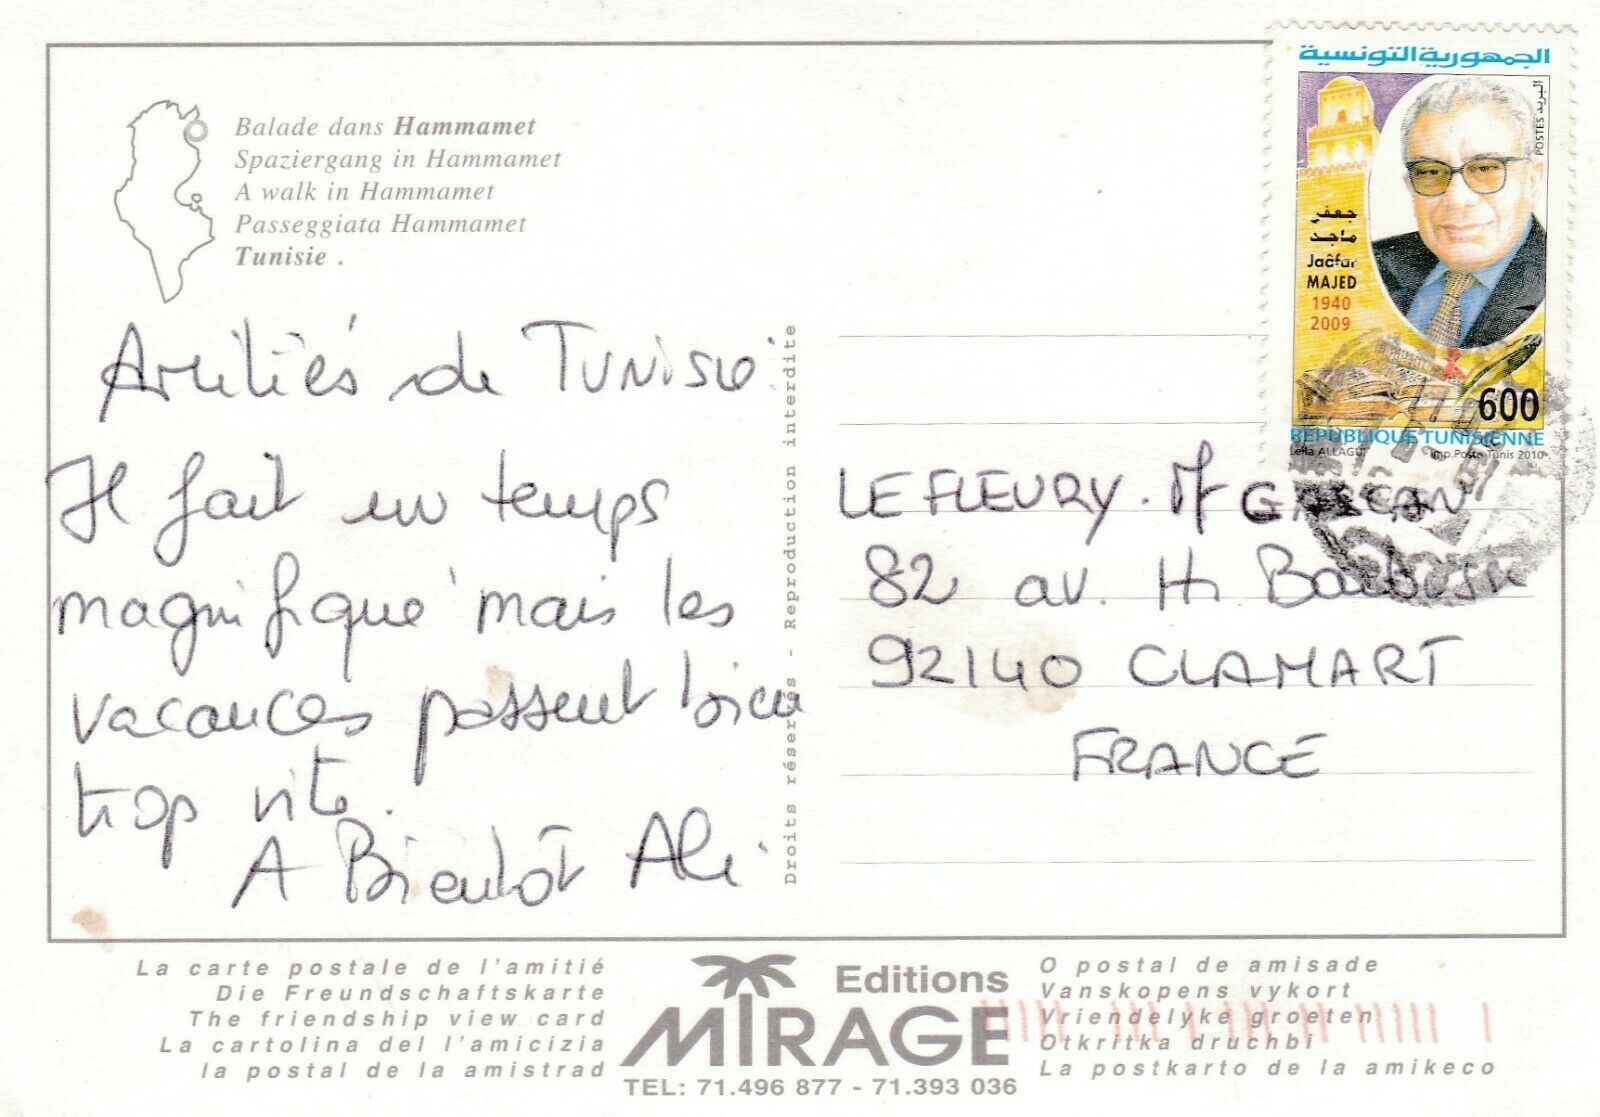 Balade dans Hammamet
Spaziergang in Hammamet
A walk in Hammamet
Passeggiata Hammamet
Tunisie .
Amitiés de TUNISIE
Il fait un temps
magnifique mais les
vacances passent bien
trop vite.
A Bientôt Ali
Droits réservés - Reproduction interdite
الجمهورية التونسية
البريد POSTES
جعفر
ماجد
Jaâfar
MAJED
1940
2009
600
REPUBLIQUE TUNISIENNE
Leila ALLAGUI Imp.Poste Tunis 2010
LE FLEURY. M
82 av. H. Barbusse
92140 CLAMART
FRANCE
La carte postale de l'amitié
Die Freundschaftskarte
The friendship view card
La cartolina del l'amicizia
la postal de la amistrad
Editions
MIRAGE
TEL: 71.496 877 - 71.393 036
O postal de amisade
Vanskopens vykort
Vriendelyke groeten
Otkritka druchbi
La postkarto de la amikeco